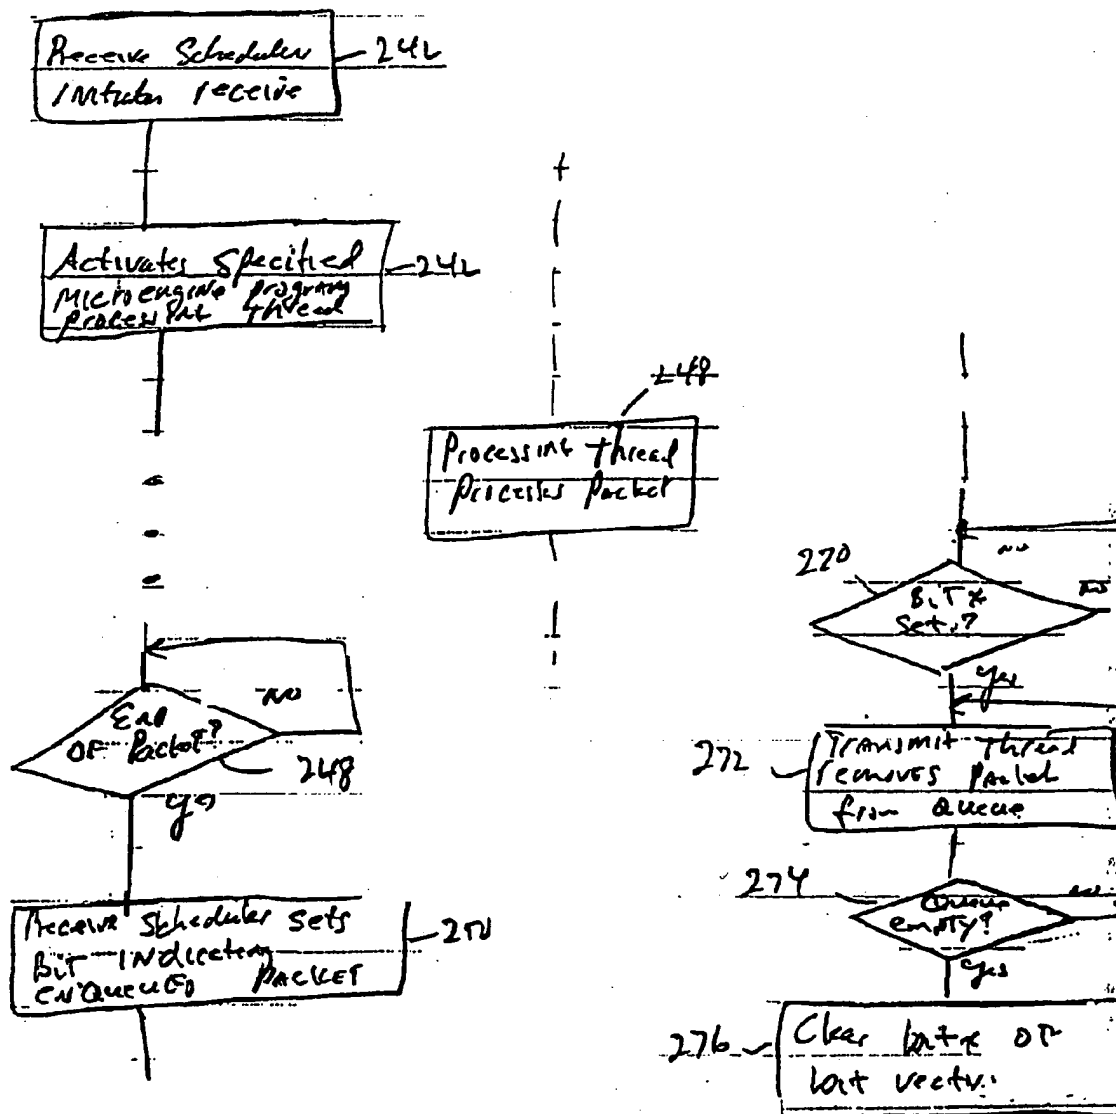 Receive Scheduler
Initiates receive
242
Activates Specified
Microengine program
processing thread
242
248
Processing thread
Processes Packet
End
OF Packet?
NO
248
yes
Receive Scheduler Sets
Bit Indicating
enqueued PACKET
250
270
BiTx
set?
NO
NO
yes
272
Transmit thread
removes Packet
from Queue
274
Queue
empty?
NO
yes
276
Clear bit x of
bit vector